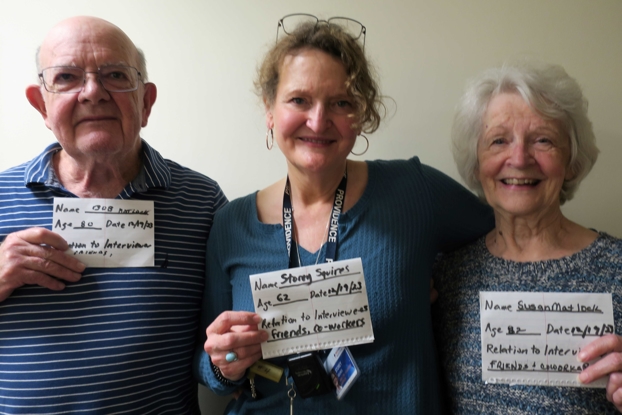 Name BOB MATLOCK
Age 80 Date 12/19/23
Relation to Interviewee
FRIENDS,
PROVIDENCE
Name Storey Squires
Age 62 Date 12/19/23
Relation to Interviewees
Friends, co-workers
Name Susan Matlock
Age 82 Date 12/19/23
Relation to Intervi
FRIENDS +